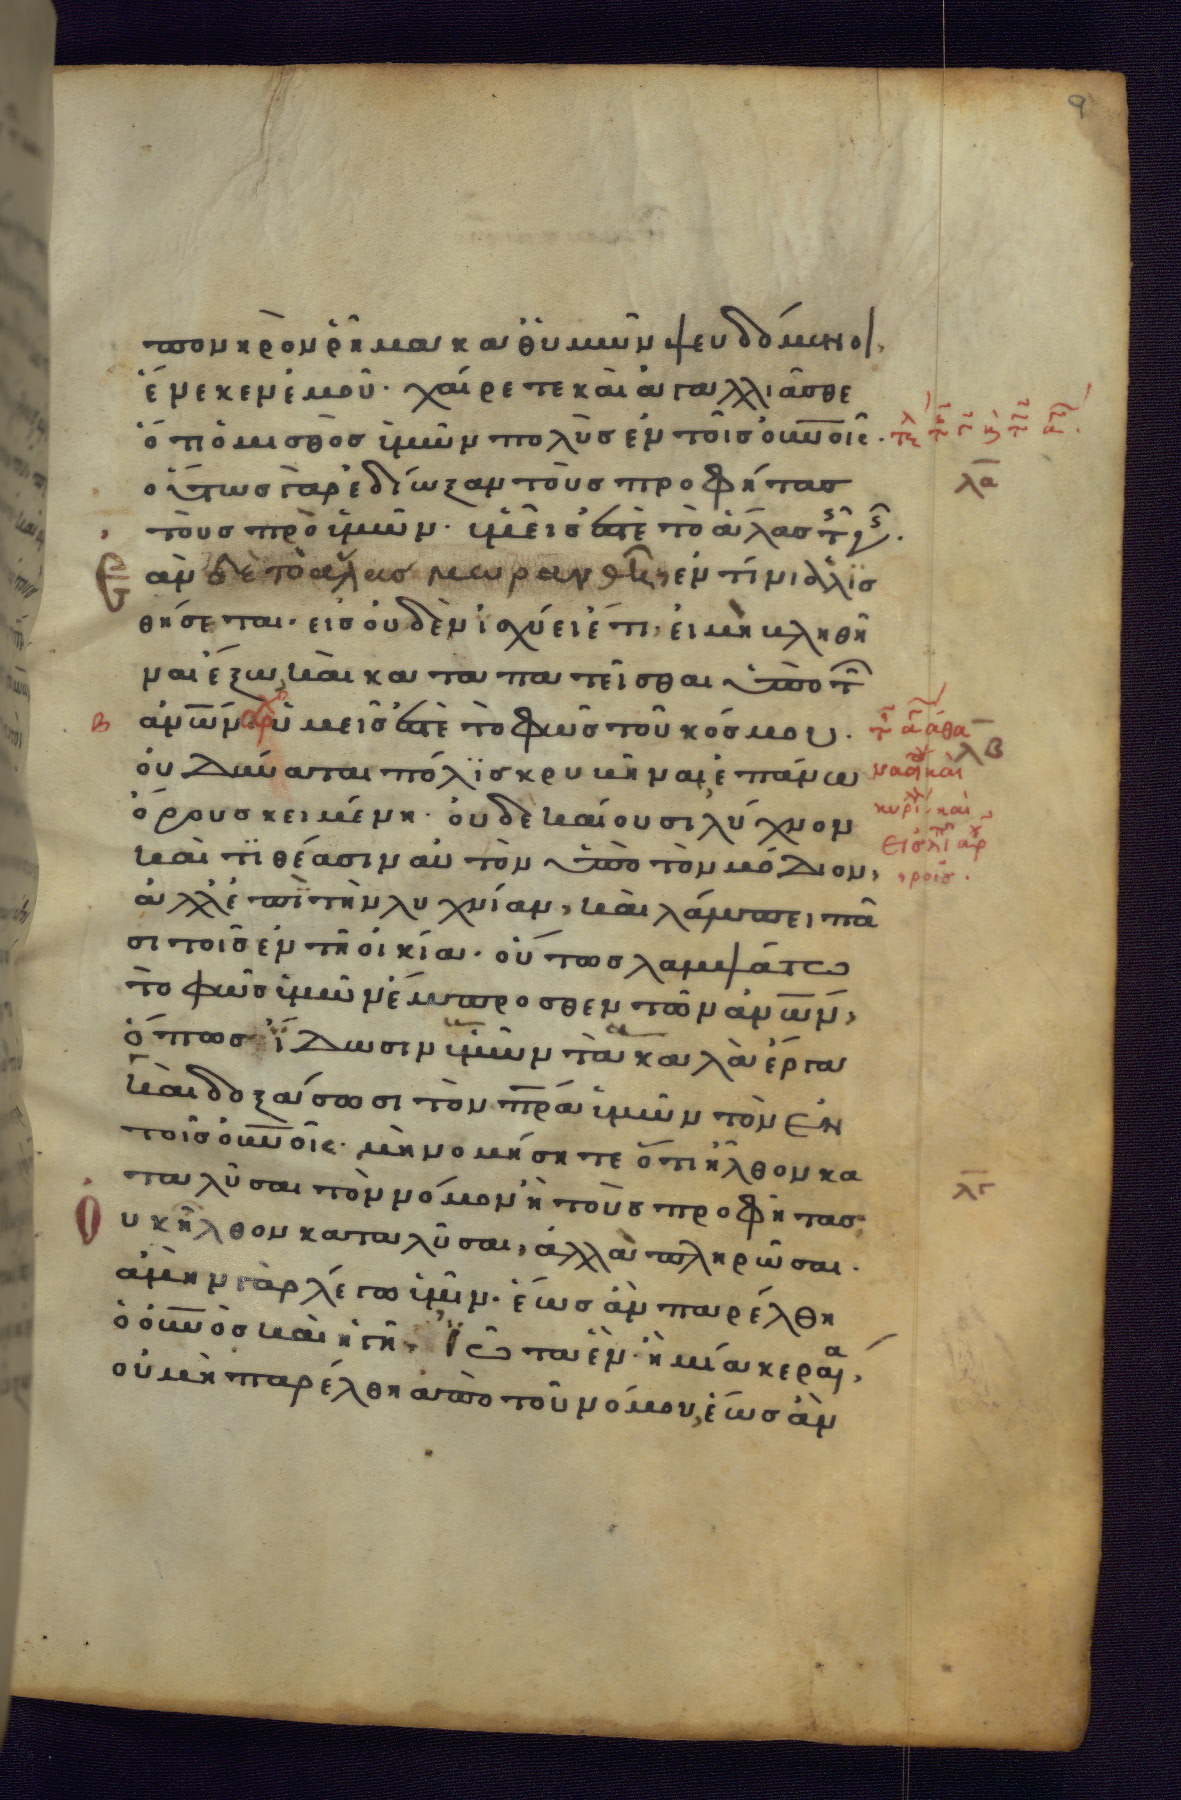 9
πονηρὸν ῥῆμα καθ ὑμῶν ψευδόμενοι,
ἕνεκεν ἐμοῦ· χαίρετε καὶ ἀγαλλιᾶσθε
ὅτι ὁ μισθὸς ὑμῶν πολὺς ἐν τοῖς οὐνοῖς·
οὕτως γὰρ ἐδίωξαν τοὺς προφήτας
λα
τοὺς πρὸ ὑμῶν· ὑμεῖς ἐστὲ τὸ ἅλας τῆς γῆς.
Ἐὰν δὲ τὸ ἅλας μωρανθῆ, ἐν τίνι ἁλισ
θήσεται· εἰς οὐδὲν ἰσχύει ἔτι, εἰ μὴ βληθῆ
ναι ἔξω, καὶ καταπατεῖσθαι ὑπὸ τῶν
ἀνων· ὑμεῖς ἐστὲ τὸ φῶς τοῦ κόσμου.
λβ
οὐ δύναται πόλις κρυβῆναι, ἐπάνω
ὄρους κειμένη· οὐδὲ καίουσι λύχνον
καὶ τιθέασιν αὐτὸν ὑπὸ τὸν μόδιον,
ἀλλ ἐπὶ τὴν λυχνίαν, καὶ λάμπει πᾶ
σι τοῖς ἐν τῆ οἰκία· οὕτως λαμψάτω
τὸ φῶς ὑμῶν ἔμπροσθεν τῶν ἀνων,
ὅπως ἴδωσιν ὑμῶν τὰ καλὰ ἔργα
καὶ δοξάσωσι τὸν πρα ὑμῶν τὸν ἐν
τοῖς οὐνοῖς· μὴ νομήσητε ὅτι ἦλθον κα
ταλῦσαι τὸν νόμον ἢ τοὺς προφήτας·
λγ
Οὐκ ἦλθον καταλῦσαι, ἀλλὰ πληρῶσαι·
ἀμὴν γὰρ λέγω ὑμῖν· ἕως ἂν παρέλθη
ὁ οὐνὸς καὶ ἡ γῆ, ἰῶτα ἓν ἢ μία κεραία,
οὐ μὴ παρέλθη ἀπὸ τοῦ νόμου, ἕως ἂν